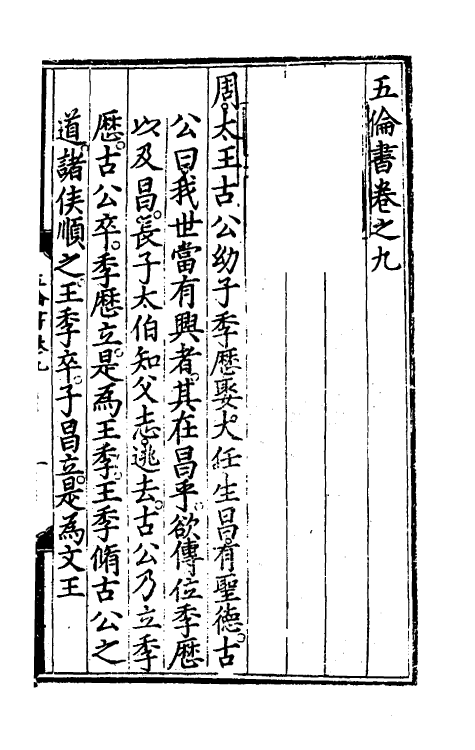 五倫書卷之九
周太王古公幼子季歷娶大任生昌有聖德古
公曰我世當有興者其在昌乎欲傳位季歷
以及昌長子太伯知父志逃去古公乃立季
歷古公卒季歷立是為王季王季脩古公之
道諸侯順之王季卒子昌立是為文王